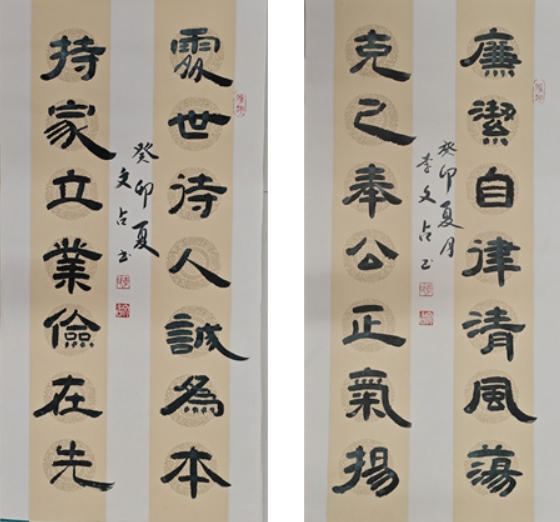 處世待人誠為本
癸卯夏
文占书
持家立業儉在先
廉潔自律清風蕩
癸卯夏月
李文占书
克己奉公正氣揚